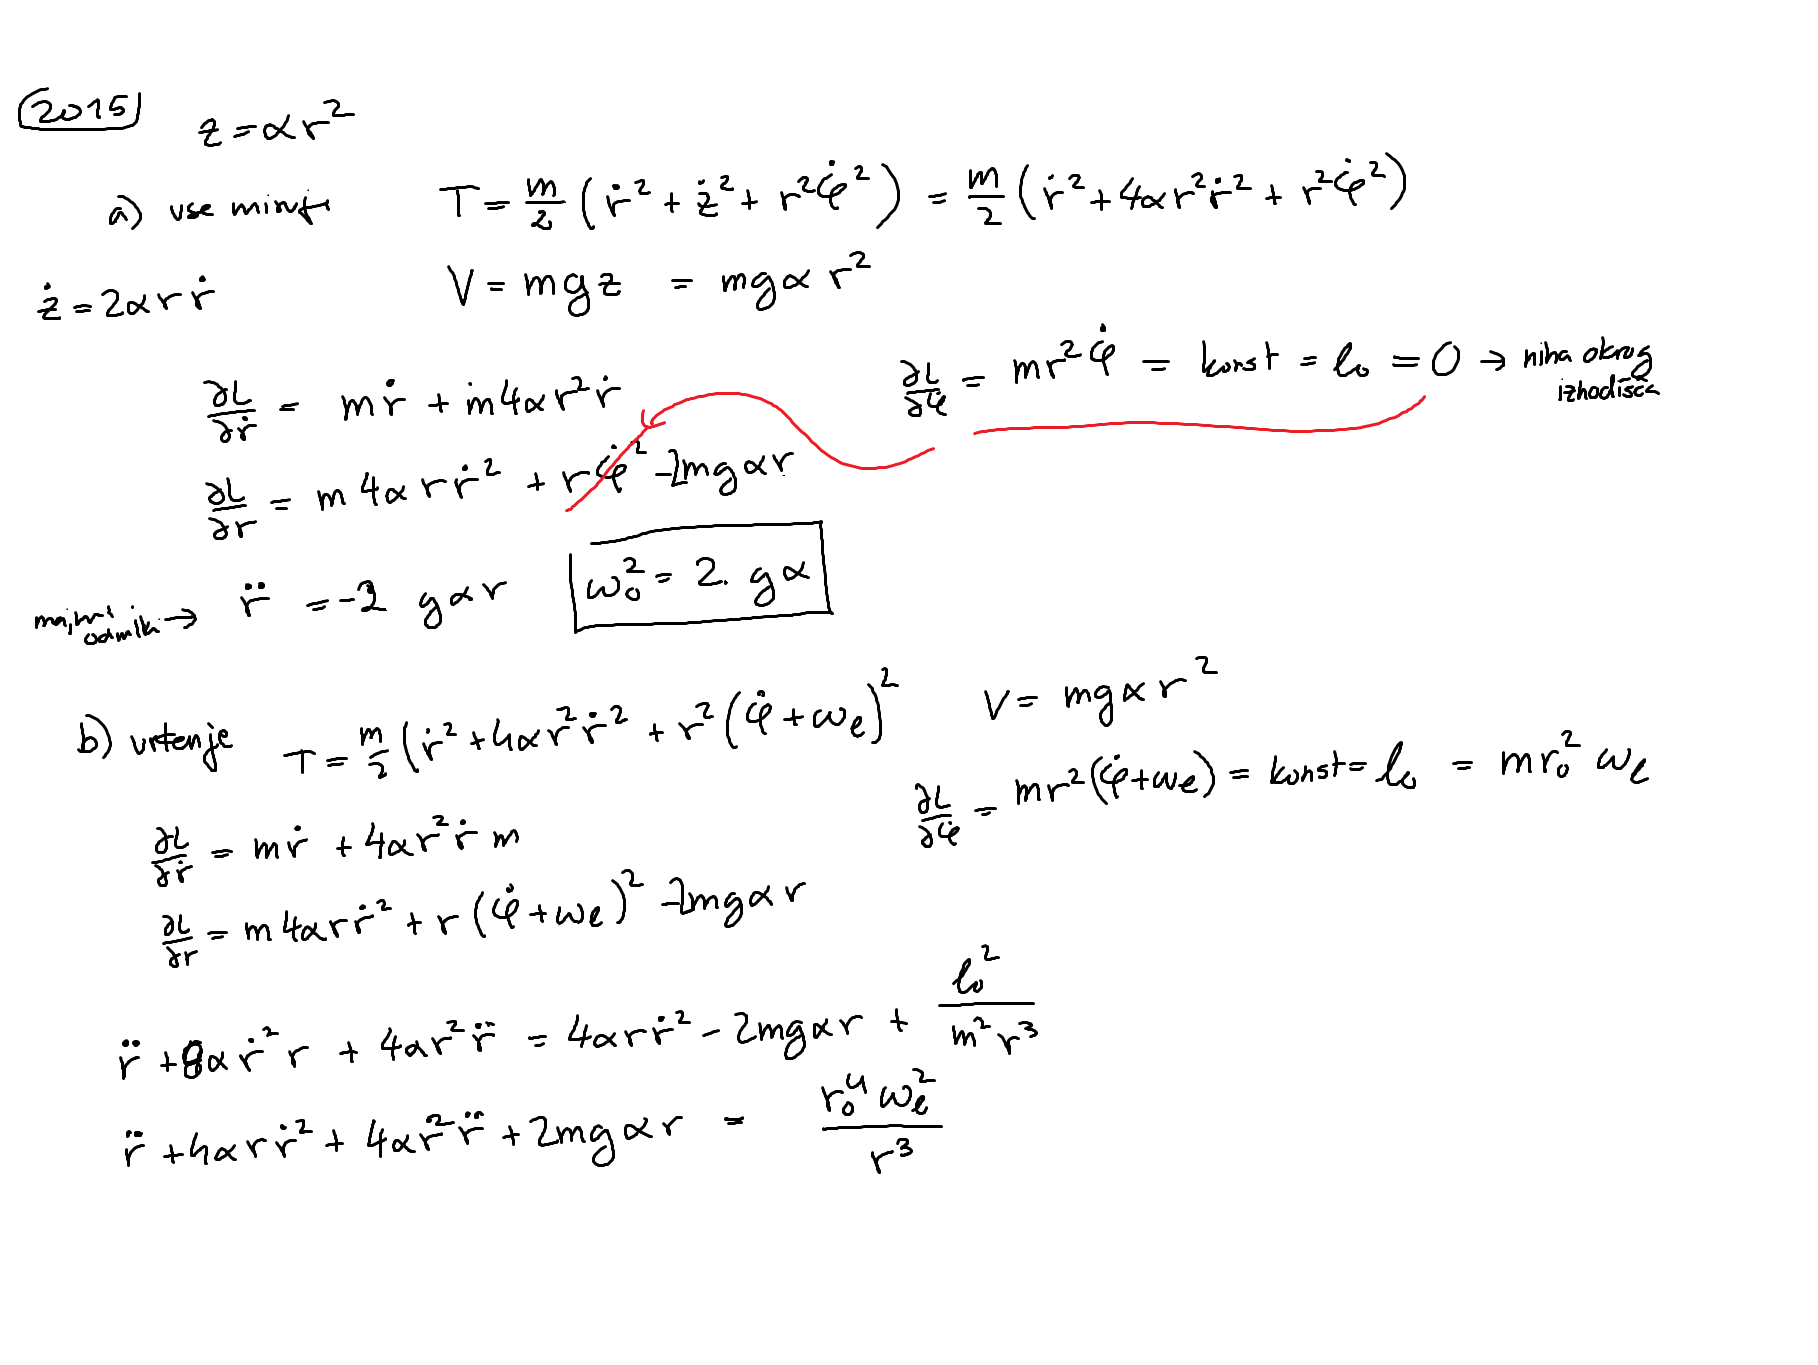 2015
z = αr²
a) vse miruje T = m/2 (ṙ² + ż² + r²φ̇²) = m/2 (ṙ² + 4αr²ṙ² + r²φ̇²)
ż = 2αrṙ V = mgz = mgαr²
∂L/∂ṙ = mṙ + m4αr²ṙ
∂L/∂φ̇ = mr²φ̇ = konst = l₀ = 0 → niha okrog izhodišča
∂L/∂r = m4αrṙ² + rφ̇² - 2mgαr
majhni odmiki → r̈ = -2 gαr
ω₀² = 2. gα
b) vrtenje T = m/2 (ṙ² + 4αr²ṙ² + r²(φ̇ + ωe)²
V = mgαr²
∂L/∂φ̇ = mr²(φ̇ + ωe) = konst = l₀ = mr₀²ωe
∂L/∂ṙ = mṙ + 4αr²ṙ m
∂L/∂r = m4αrṙ² + r(φ̇ + ωe)² - 2mgαr
r̈ + 8αṙ²r + 4αr²r̈ = 4αrṙ² - 2mgαr + l₀²/m²r³
r̈ + 4αrṙ² + 4αr²r̈ + 2mgαr = r₀⁴ωe²/r³